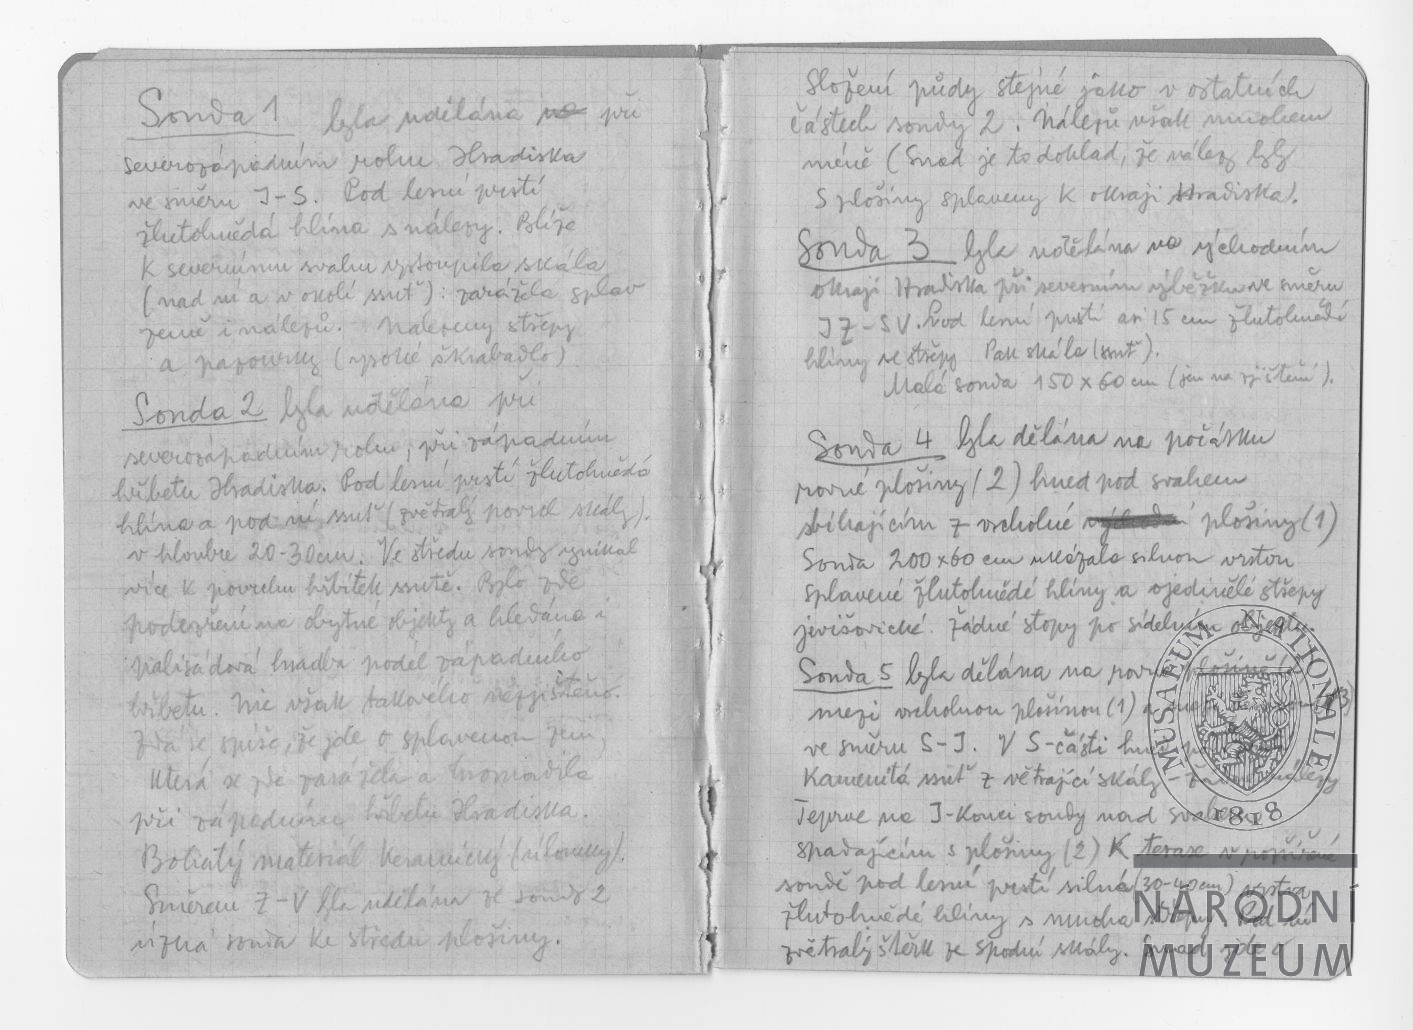 Sonda 1 byla udělána na při
severozápadním rohu Hradiska
ve směru J-S. Pod lesní prstí
žlutohnědá hlína s nálezy. Blíže
k severnímu svahu vystoupila skála
(nad ní a v okolí suť): zarážela splav
země i nálezů. Nalezeny střepy
a pazourky (vysoké škrabadlo)
Sonda 2 byla udělána při
severozápadním rohu, při západním
hřbetu Hradiska. Pod lesní prstí žlutohnědá
hlína a pod ní suť (zvětralý povrch skály).
v hloubce 20-30cm. Ve středu sondy vynikal
více k povrchu hřbítek sutě. Bylo zde
podezření na obytné objekty a hledána i
palisádová hradba podél západního
hřbetu. Nic však takového nezjištěno.
Zdá se spíše, že jde o splavenou zem,
která se zde zarážela a hromadila
při západním hřbetu Hradiska.
Bohatý materiál keramický (silonky).
Směrem Z-V byla udělána ze sondy 2
úzká sonda ke středu plošiny.
Složení půdy stejné jako v ostatních
částech sondy 2. Nálezů však mnohem
méně (Snad je to doklad, že nálezy byly
s plošiny splaveny k okraji Hradiska).
Sonda 3 byla udělána na východním
okraji Hradiska při severním výběžku ve směru
JZ-SV. Pod lesní prstí asi 15 cm žlutohnědé
hlíny se střepy. Pak skála (suť).
Malá sonda 150x60cm (jen na zjištění).
Sonda 4 byla dělána na počátku
rovné plošiny (2) hned pod svahem
sbíhajícím z vrcholné východní plošiny (1)
Sonda 200x60 cm ukázala silnou vrstvu
splavené žlutohnědé hlíny a ojedinělé střepy
jevišovické. Žádné stopy po sídelním objektu.
Sonda 5 byla dělána na rovné plošině
mezi vrcholnou plošinou (1) a (3)
ve směru S-J. V S-části hned
kamenitá suť z větrající skály - nálezy
Teprve na J-konci sondy nad svahem
spadajícím s plošiny (2) k terase v
sondě pod lesní prstí silná (30-40cm) vrstva
žlutohnědé hlíny s mnoha střepy. Pod ní
zvětralý štěrk ze spodní skály. Snad jde o
MUSAEUM NATIONALE
1818
NÁRODNÍ
MUZEUM